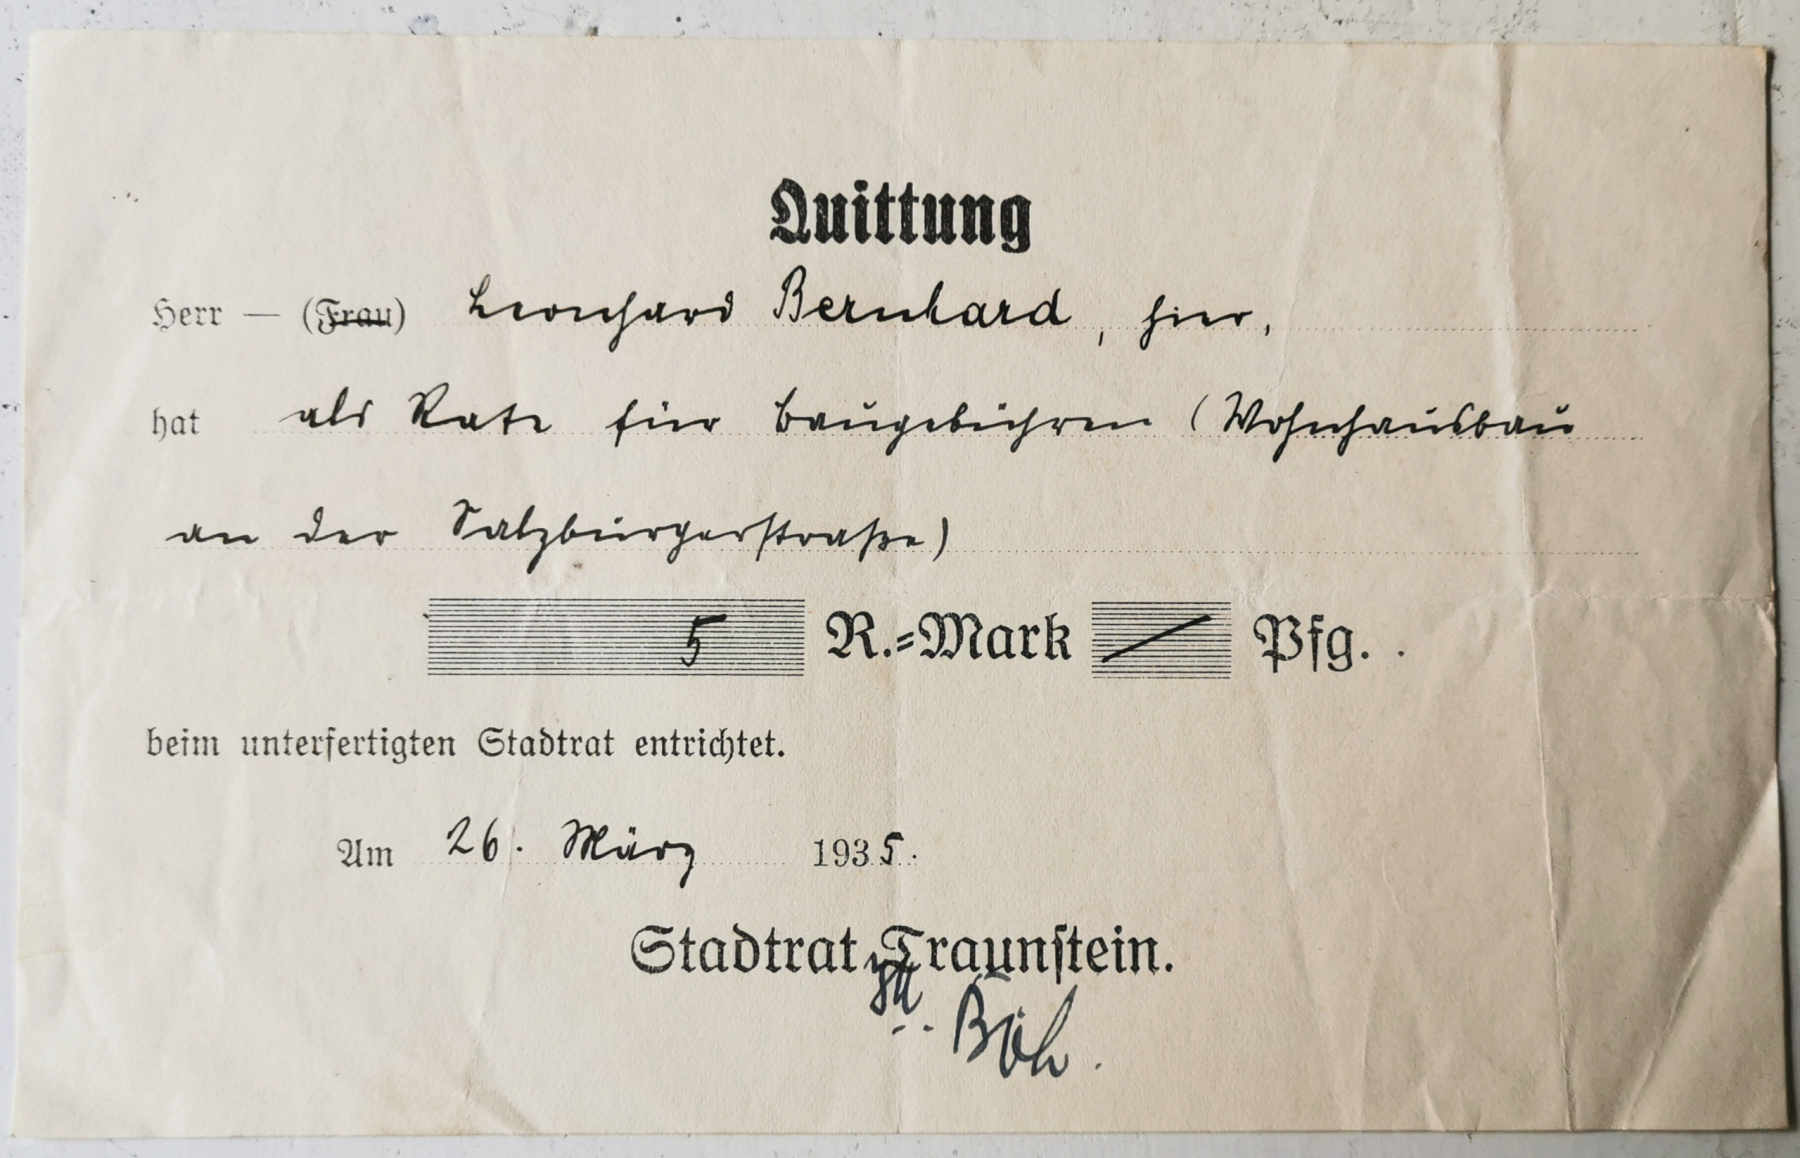 Quittung
Herr — (Frau) Leonhard Bernhard, hier,
hat als Rate für Baugebühren (Wohnhausbau
an der Salzburgerstraße)
5 R.=Mark — Pfg.
beim unterfertigten Stadtrat entrichtet.
Am 26. März 1935.
Stadtrat Traunstein.